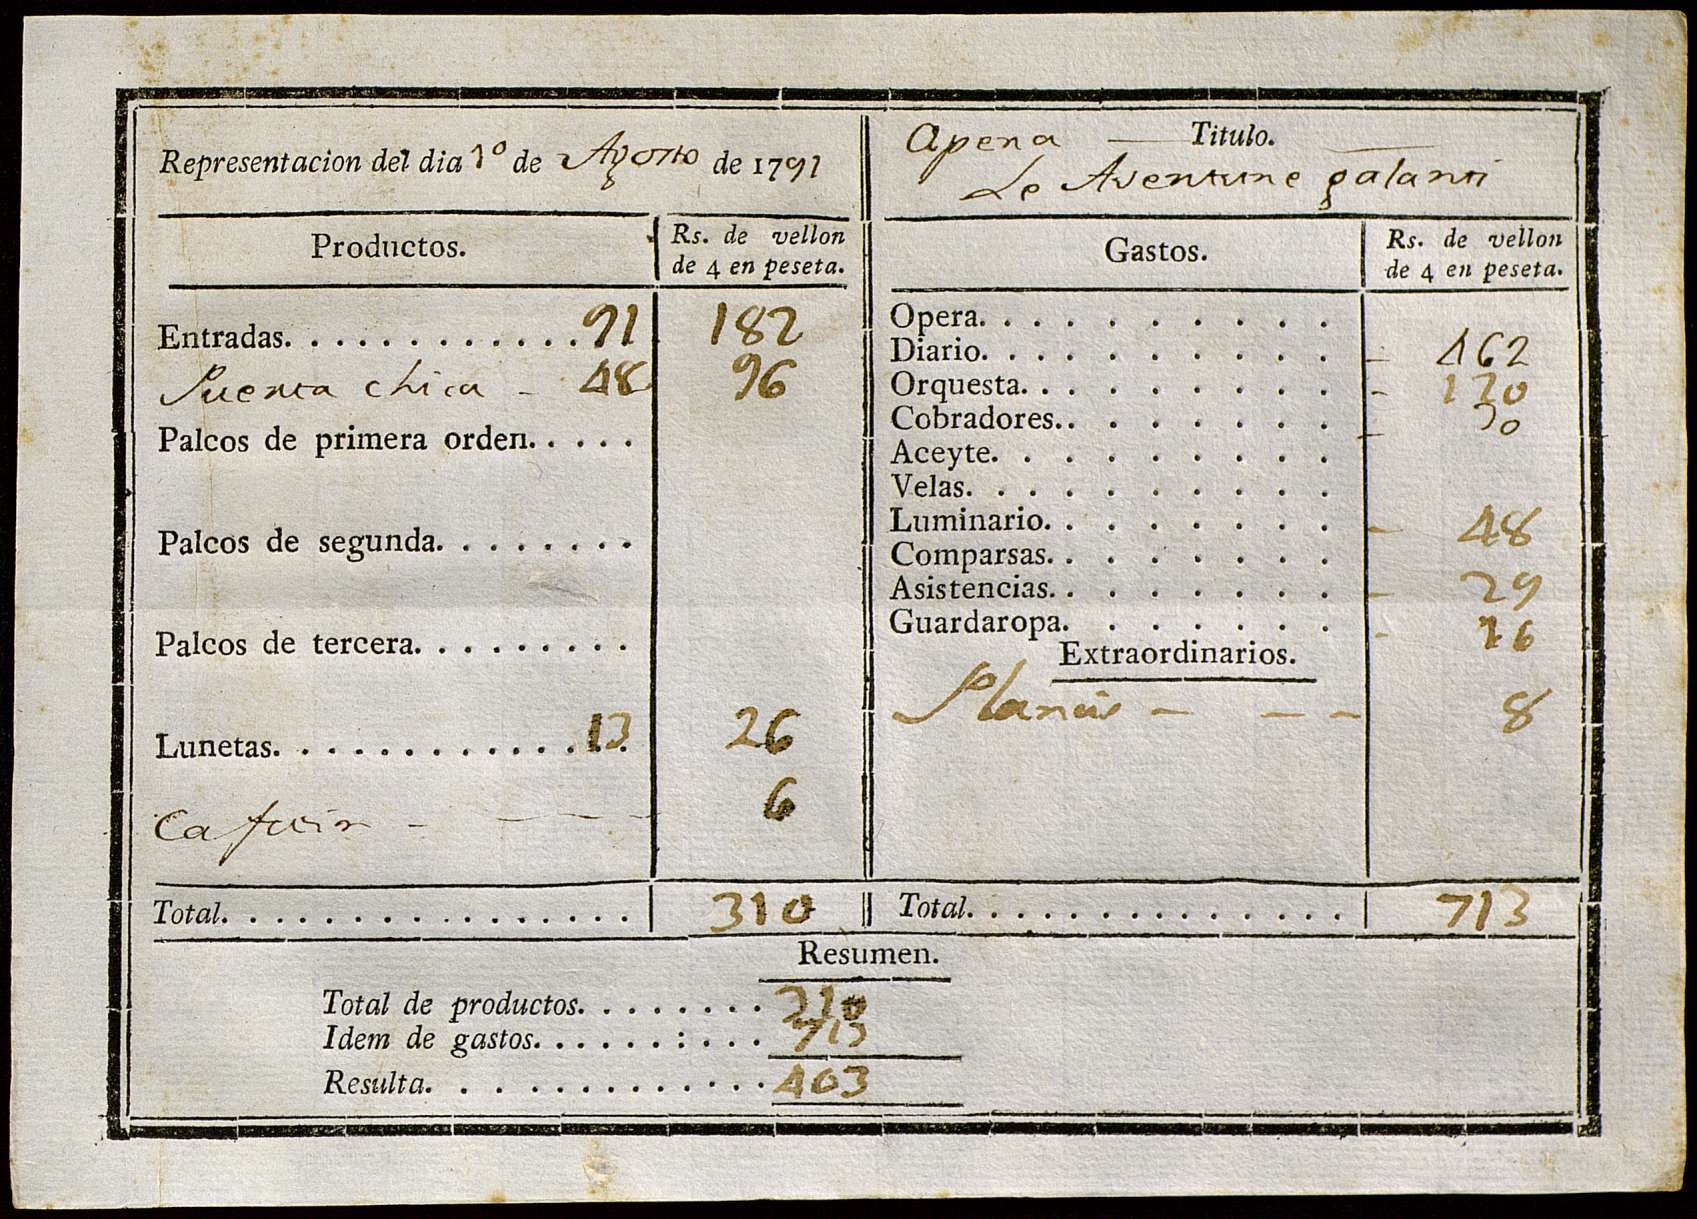 Representacion del dia 1º de Agosto de 1791
Titulo.
Opera
Le Aventure galanti
Productos.
Rs. de vellon
de 4 en peseta.
Entradas. . . . . . . . . . . . 91 182
Puerta chica - 48 96
Palcos de primera orden. . . . .
Palcos de segunda. . . . . . . .
Palcos de tercera. . . . . . . . .
Lunetas. . . . . . . . . . . . . 13 26
6
Total. . . . . . . . . . . . . . . . 310
Gastos.
Rs. de vellon
de 4 en peseta.
Opera. . . . . . . . . .
Diario. . . . . . . . . . - 462
Orquesta. . . . . . . . . - 120
Cobradores. . . . . . . . - 30
Aceyte. . . . . . . . .
Velas. . . . . . . . . .
Luminario. . . . . . . . - 48
Comparsas. . . . . . . .
Asistencias. . . . . . . . - 29
Guardaropa. . . . . . . - 16
Extraordinarios.
- - - 8
Total. . . . . . . . . . . . . . . 713
Resumen.
Total de productos. . . . . . . . 310
Idem de gastos. . . . . . : . . . 713
Resulta. . . . . . . . . . . . . 403